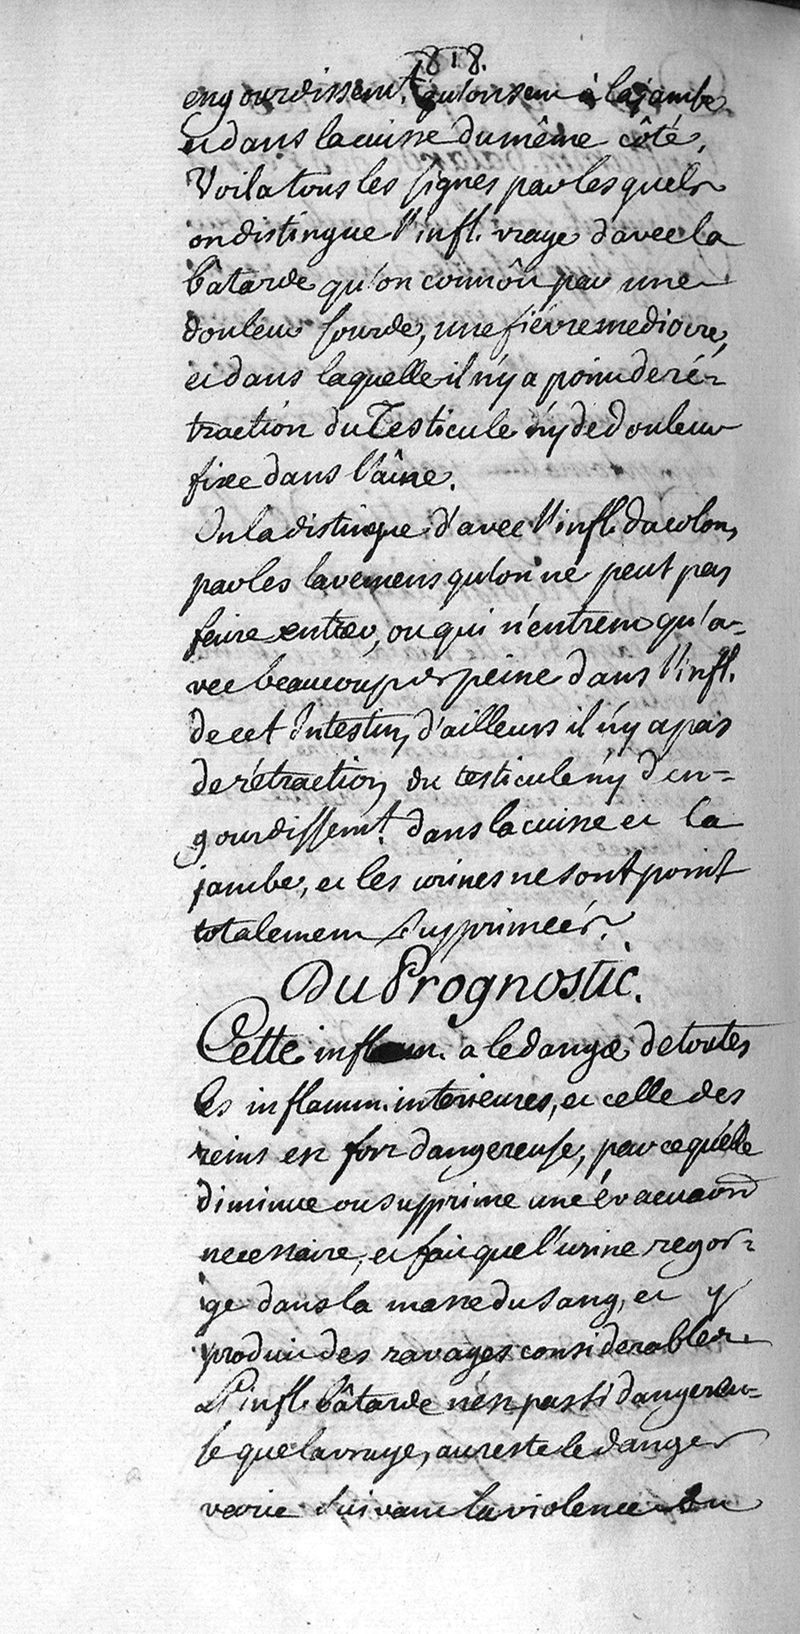 818.
engourdissemt. qu'on sent à la jambe
et dans la cuisse du même côté.
Voila tous les signes par lesquels
on distingue l'infl. vraye d'avec la
bâtarde qu'on connôit par une
douleur sourde, une fiévre mediocre,
et dans laquelle il n'y a point de ré-
traction du Testicule ny de douleur
fixe dans l'aîne.
On la distingue d'avec l'infl. du colon,
par les lavemens qu'on ne peut pas
faire entrer, ou qui n'entrent qu'a-
vec beaucoup de peine dans l'infl.
de cet Intestin, d'ailleurs il n'y a pas
de rétraction du testicule ny d'en=
gourdissemt. dans la cuisse et la
jambe, et les urines ne sont point
totalement supprimeés.
Du Prognostic.
Cette inflam. a le danger de toutes
les inflamm. interieures, et celle des
reins est fort dangereuse, parce qu'elle
diminue ou supprime une évacuaon
necessaire, et fait que l'urine regor-
ge dans la masse du sang, et y
produit des ravages considerables.
L'infl. bâtarde n'est pas si dangereu-
se que la vraye, au reste le danger
varie suivant la violence du